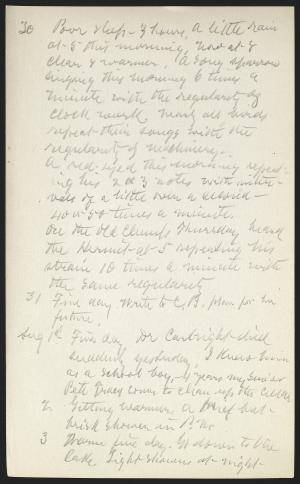 30 Poor sleep - 4 hours, a little rain
at 5 this morning, now at 8
clear & warmer. A song sparrow
singing this morning 6 times a
minute with the regularity of
clock work. Nearly all birds
repeat their songs with the
regularity of machinery.
A red-eyed this morning repeat-
ing his 2 or 3 notes with inter-
vals of a little over a second -
40 or 50 times a minute.
On the Old Clump, Thursday, heard
the Hermit at 5 repeating his
strain 10 times a minute with
the same regularity
31 Fine day. Write to C.B. plan for her
future.
Aug 1st Fine day Dr Cartright died
suddenly yesterday, I knew him
as a school boy, 4 years my senior
Pete Tracy comes to clean up the cellar
2 Getting warmer, a brief but
brisk shower in P.M.
3 Warm fine day. Go down to the
lake. Light showers at night